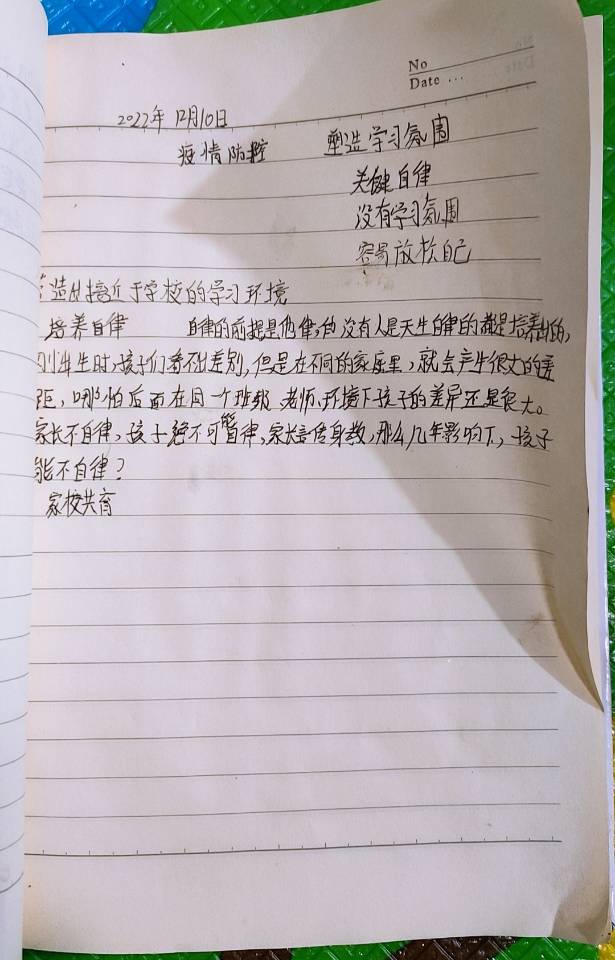 No
Date ...
2022年12月10日
疫情防控 塑造学习氛围
关键自律
没有学习氛围
容易放松自己
造出接近于学校的学习环境
培养自律 自律的前提是他律,的没有人是天生自律的都是培养出的,
刚出生时,孩子们看不出差别,但是在不同的家庭里,就会产生很大的差
距,哪怕后面在同一个班级、老师、环境下孩子的差异还是很大。
家长不自律,孩子绝不可能自律,家长言传身教,那么几年影响下,孩子
能不自律?
家校共育